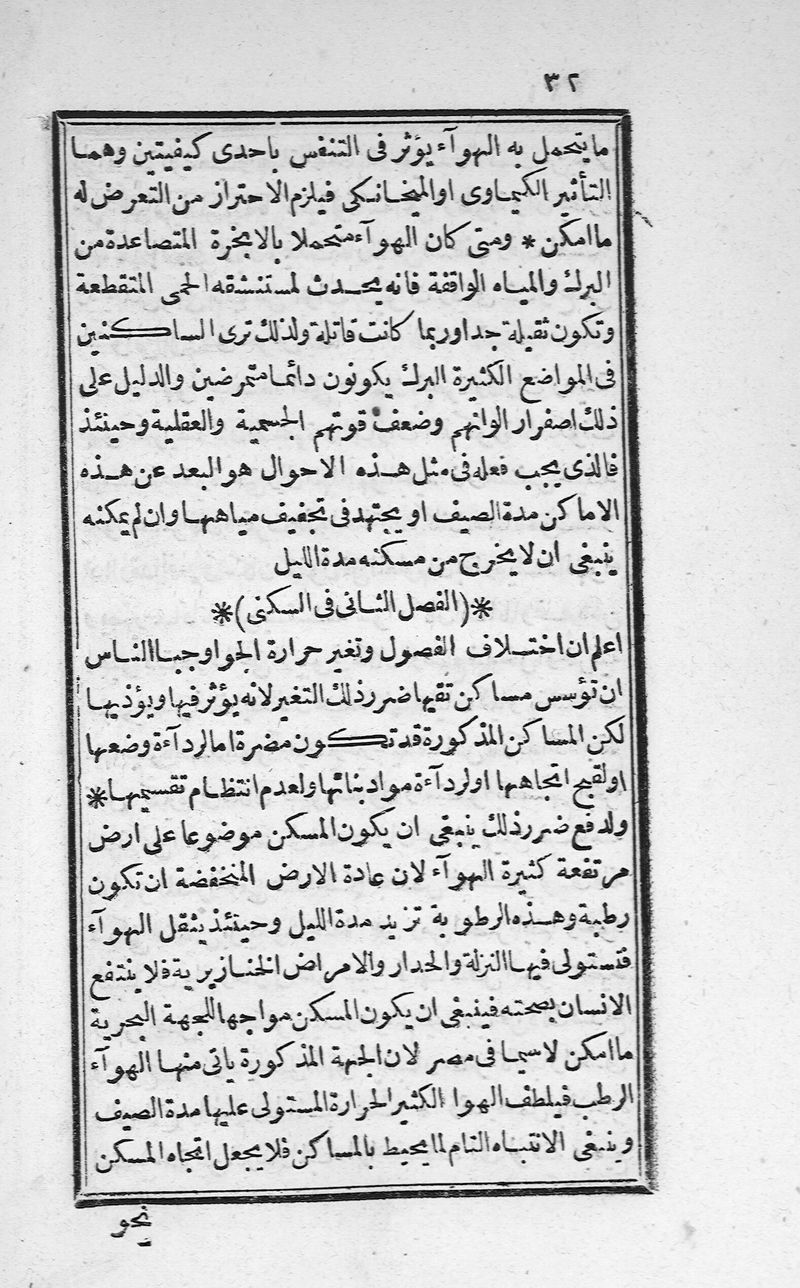 ٣٢
ما يتحمل به الهوآء يؤثر فى التنفس باحدى كيفيتين وهما
التأثير الكيماوى او الميخانيكى فيلزم الاحتراز من التعرض له
ما امكن * ومتى كان الهوآء متحملا بالابخرة المتصاعدة من
البرك والمياه الواقفة فانه يحدث لمستنشقه الحمى المتقطعة
وتكون ثقيلة جدا وربما كانت قاتلة ولذلك ترى الساكنين
فى المواضع الكثيرة البرك يكونون دائما متمرضين والدليل على
ذلك اصفرار الوانهم وضعف قوتهم الجسمية والعقلية وحينئذ
فالذى يجب فعله فى مثل هذه الاحوال هو البعد عن هذه
الاماكن مدة الصيف او يجتهد فى تجفيف مياهها وان لم يمكنه
ينبغى ان لا يخرج من مسكنه مدة الليل
*(الفصل الثانى فى السكنى)*
اعلم ان اختلاف الفصول وتغير حرارة الجو اوجبا الناس
ان تؤسس مساكن تقيها ضرر ذلك التغير لانه يؤثر فيها ويؤذيها
لكن المساكن المذكورة قد تكون مضرة اما لردآءة وضعها
او لقبح اتجاهها او لردآءة مواد بنائها ولعدم انتظام تقسيمها *
ولدفع ضرر ذلك ينبغى ان يكون المسكن موضوعا على ارض
مرتفعة كثيرة الهوآء لان عادة الارض المنخفضة ان تكون
رطبة وهذه الرطوبة تزيد مدة الليل وحينئذ يثقل الهوآء
فتستولى فيها النزلة والحدار والامراض الخنازيرية فلا ينتفع
الانسان بصحته فينبغى ان يكون المسكن مواجها للجهة البحرية
ما امكن لا سيما فى مصر لان الجهة المذكورة ياتى منها الهوآء
الرطب فيلطف الهوا الكثير الحرارة المستولى عليها مدة الصيف
وينبغى الانتباه التام لما يحيط بالمساكن فلا يجعل اتجاه المسكن
نحو